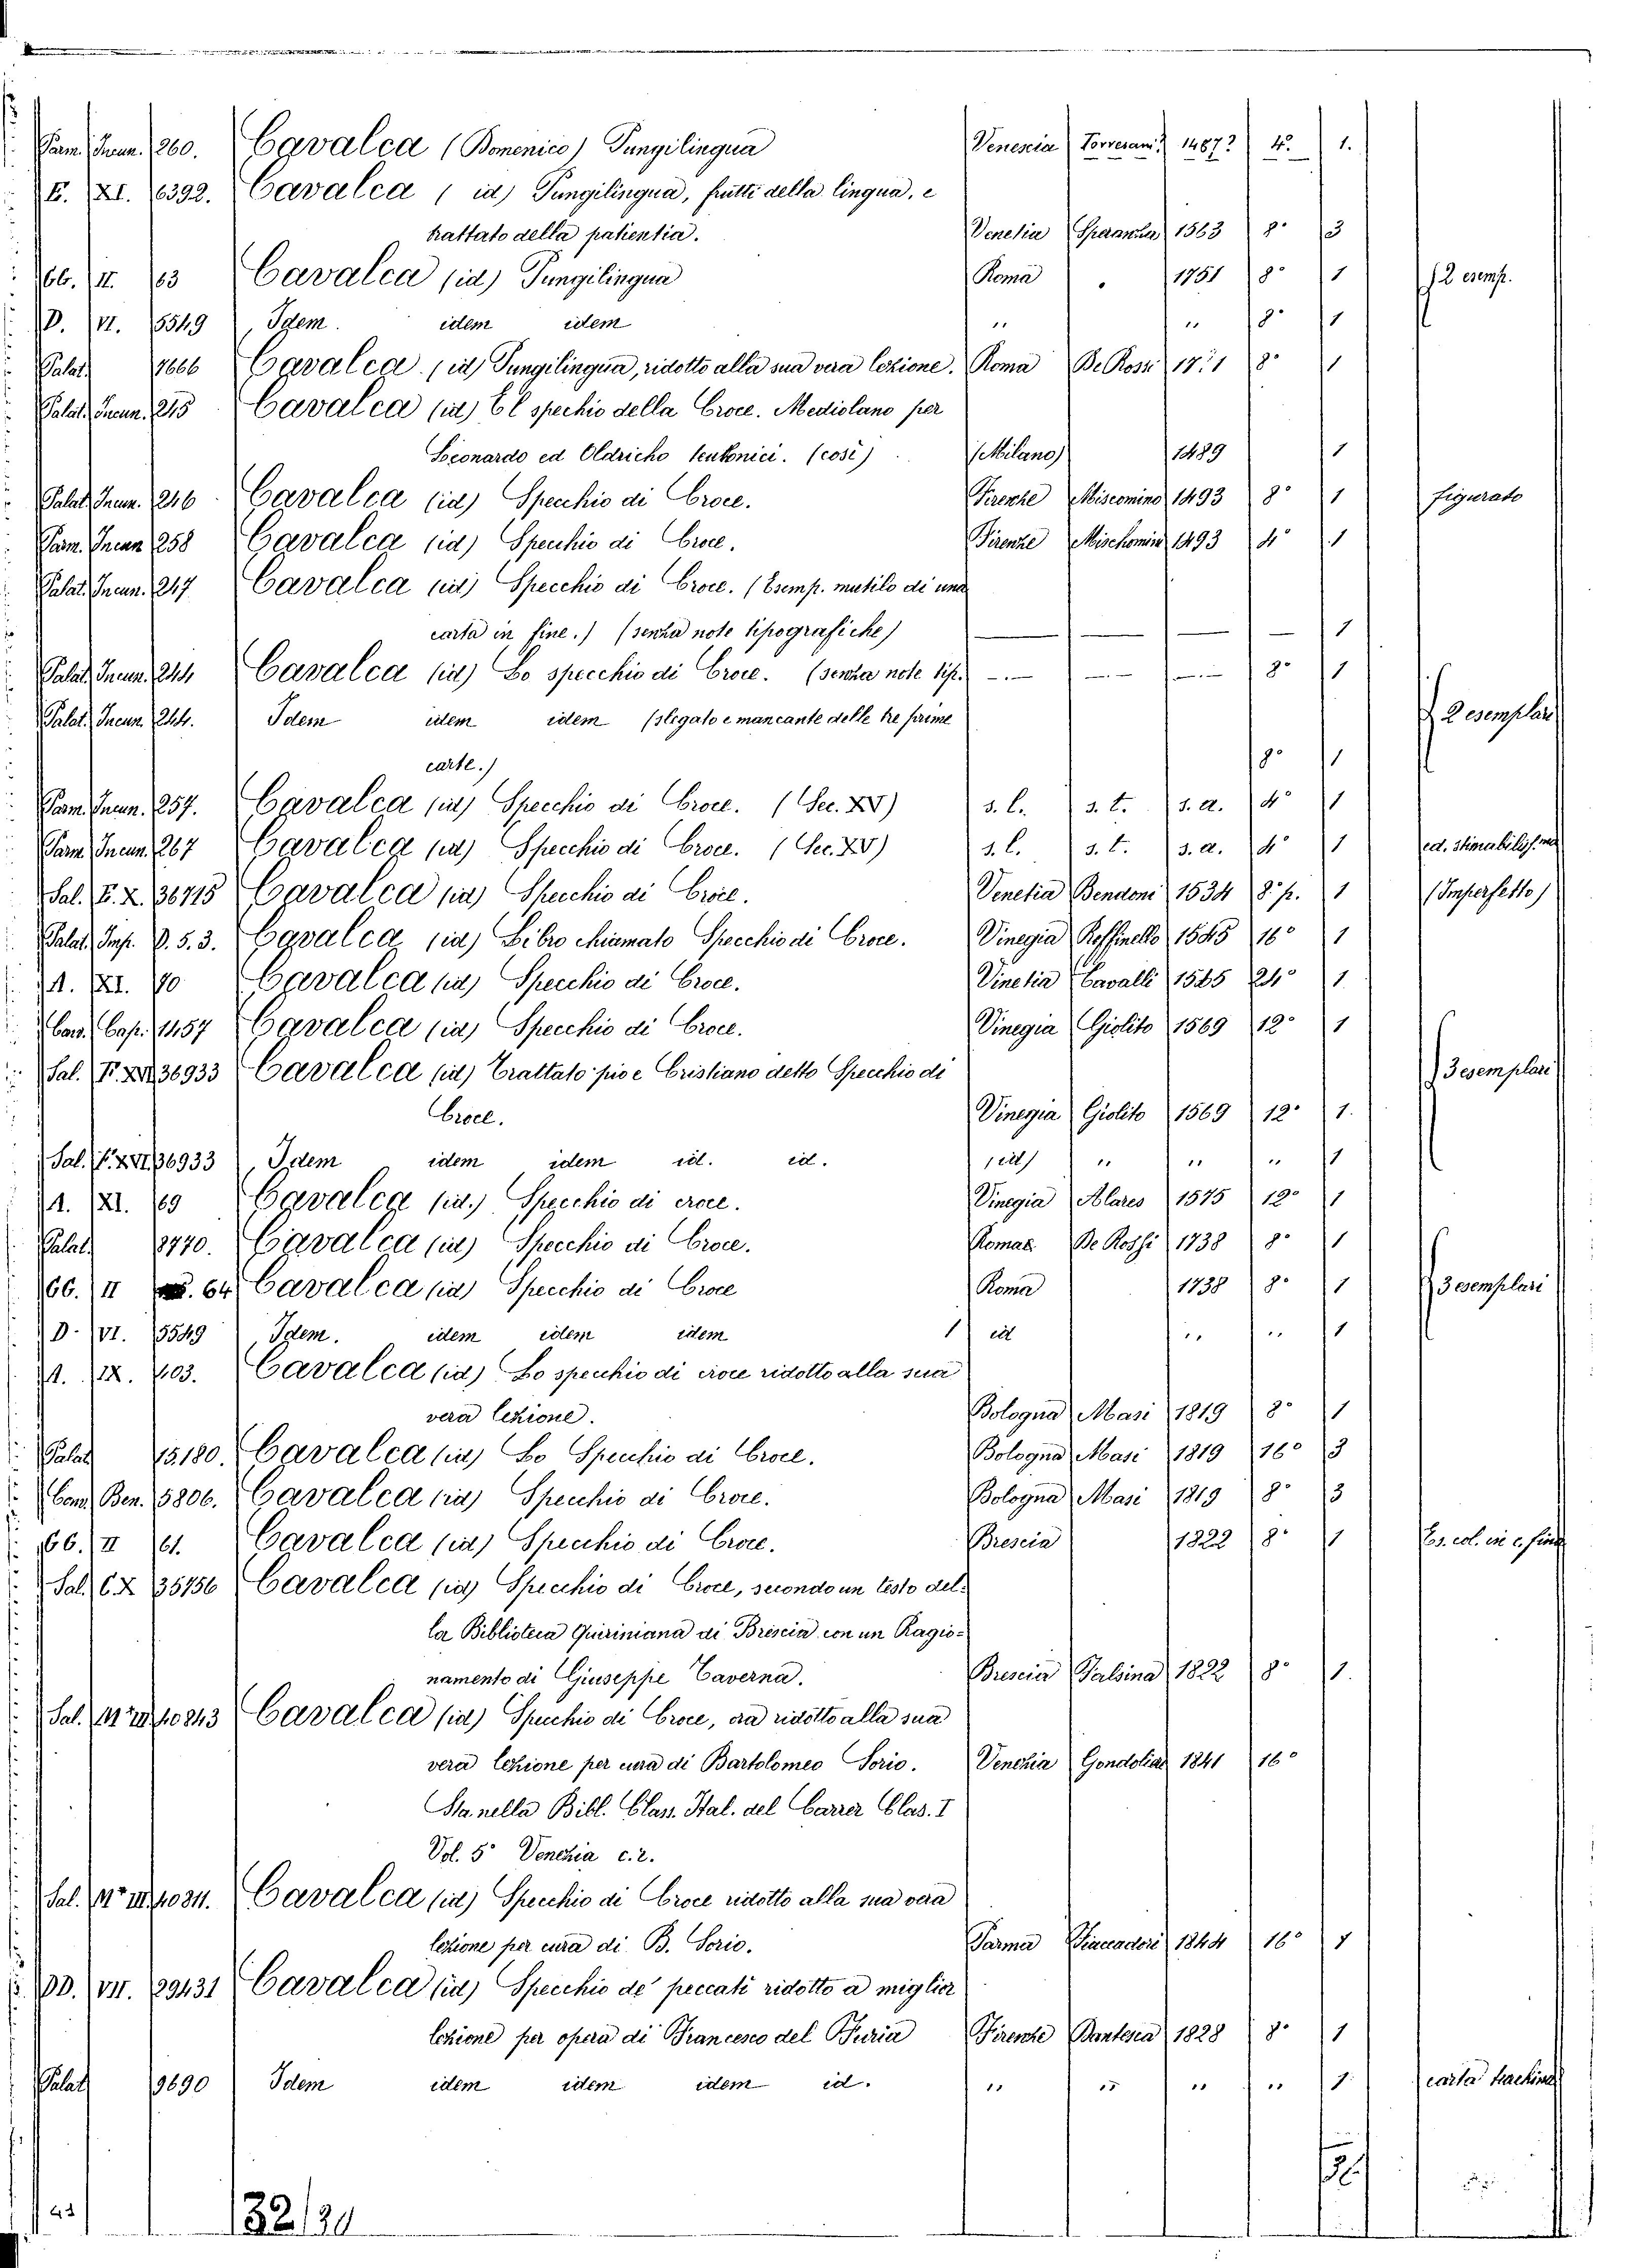 Parm. Incun. 260. Cavalca (Domenico) Pungilingua Venezia Torresani? 1487? 4.° 1.
E. XI. 6392. Cavalca (id) Pungilingua, frutti della lingua, e
trattato della patientia. Venetia Speranza 1563 8° 3
66. II. 63 Cavalca (id) Pungilingua Roma 1751 8° 1 2 esemp.
D. VI. 5549 Idem. idem idem " " 8° 1
Palat. 7666 Cavalca (id) Pungilingua, ridotto alla sua vera lezione. Roma De Rossi 1751 8° 1
Palat. Incun. 245 Cavalca (id) El spechio della Croce. Mediolano per
Leonardo ed Oldricho teutonici. (così) (Milano) 1489 1
Palat. Incun. 246 Cavalca (id) Specchio di Croce. Firenze Miscomino 1493 8° 1 figurato
Parm. Incun 258 Cavalca (id) Specchio di Croce. Firenze Mischomini 1493 4° 1
Palat. Incun. 247 Cavalca (id) Specchio di Croce. (Esemp. mutilo di una
carta in fine.) (senza note tipografiche) — — — — 1
Palat. Incun. 244 Cavalca (id) Lo specchio di Croce. (senza note tip.) — — — 8° 1
Palat. Incun. 244. Idem idem idem (slegato e mancante delle tre prime 2 esemplari
carte.) 8° 1
Parm. Incun. 257. Cavalca (id) Specchio di Croce. (Sec. XV) s. l. s. t. s. a. 4° 1
Parm. Incun. 267 Cavalca (id) Specchio di Croce. (Sec. XV) s. l. s. t. s. a. 4° 1 ed. stimabiliss.ma
Sal. F. X. 36715 Cavalca (id) Specchio di Croce. Venetia Bendoni 1534 8.° p. 1 (Imperfetto)
Palat. Imp. P. 5. 3. Cavalca (id) Libro chiamato Specchio di Croce. Vinegia Roffinello 1545 16° 1
A. XI. 70 Cavalca (id) Specchio di Croce. Vinetia Cavalli 1565 24° 1
Cap. 1457 Cavalca (id) Specchio di Croce. Vinegia Giolito 1569 12° 1
Sal. F. XVI 36933 Cavalca (id) Trattato pio e Cristiano detto Specchio di 3 esemplari
Croce. Vinegia Giolito 1569 12° 1.
Sal. F. XVI. 36933 Idem idem idem id. id. (id) " " " 1
A. XI. 69 Cavalca (id.) Specchio di croce. Vinegia Alares 1575 12° 1
Palat. 8770. Cavalca (id) Specchio di Croce. Romae De Rossi 1738 8° 1
66. II 64 Cavalca (id) Specchio di Croce Roma 1738 8° 1 3 esemplari
D. VI. 5549 Idem. idem idem idem id " " 1
A. IX. 403. Cavalca (id) Lo specchio di croce ridotto alla sua
vera lezione. Bologna Masi 1819 8° 1
Palat. 15.180. Cavalca (id) Lo Specchio di Croce. Bologna Masi 1819 16° 3
Ben. 5806. Cavalca (id) Specchio di Croce. Bologna Masi 1819 8° 3
66. II 61. Cavalca (id) Specchio di Croce. Brescia 1822 8° 1
Sal. C. X 35756 Cavalca (id) Specchio di Croce, secondo un testo del-
la Biblioteca Quiriniana di Brescia con un Ragio-
namento di Giuseppe Taverna. Brescia 1822 8° 1.
Sal. 40843 Cavalca (id) Specchio di Croce, ora ridotto alla sua
vera lezione per cura di Bartolomeo Sorio. Venezia Gondolier 1841 16°
Sta nella Bibl. Class. Ital. del Carrer Clas. I
Vol. 5° Venezia c. 2.
Sal. Cavalca (id) Specchio di Croce ridotto alla sua vera
lezione per cura di B. Sorio. Parma Fiaccadori 1844 16° 1
DD. VII. 29431 Cavalca (id) Specchio de' peccati ridotto a miglior
lezione per opera di Francesco del Furia Firenze 1828 8° 1
Palat. 9690 Idem idem idem idem id. " " " " 1
132/31